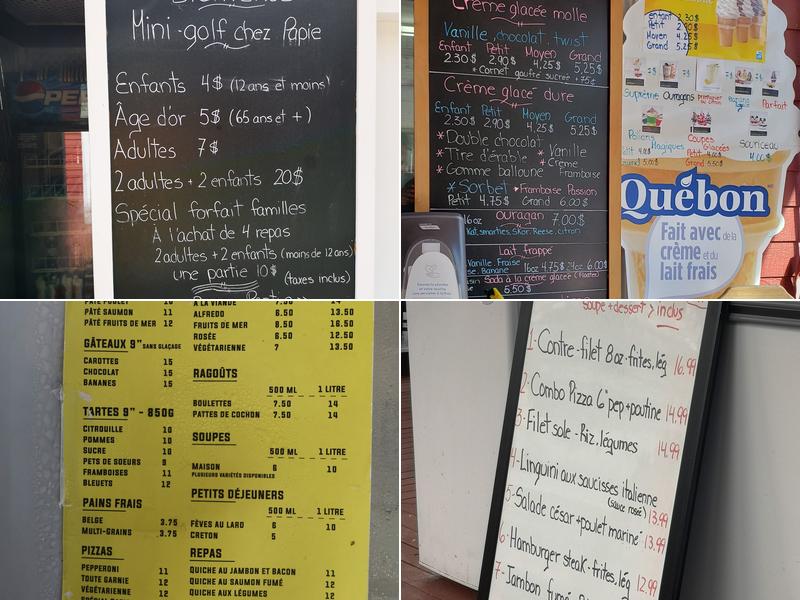 Mini-golf chez Papie
Enfants 4$ (12 ans et moins)
Âge d'or 5$ (65 ans et +)
Adultes 7$
2 adultes + 2 enfants 20$
Spécial forfait familles
À l'achat de 4 repas
2 adultes + 2 enfants (moins de 12 ans)
une partie 10$ (taxes inclus)
Crème glacée molle
Vanille, chocolat, twist
Enfant Petit Moyen Grand
2.30$ 2.90$ 4.25$ 5.25$
+ Cornet gaufré sucré +.75¢
Crème glacé dure
Enfant Petit Moyen Grand
2.30$ 2.90$ 4.25$ 5.25$
* Double chocolat
* Tire d'érable * Vanille
* Gomme balloune * Crème Framboise
* Sorbet * Framboise Passion
Petit 4.75$ Grand 6.00$
16oz Ouragan 7.00$
smarties, Skor, Reese, citron
Lait frappé
Vanille, Fraise
Banane 16oz 4.75$ 24oz 6.00$
Soda à la crème glacée
5.50$
Enfant 2.30$
Petit 2.90$
Moyen 4.25$
Grand 5.25$
Suprême Ouragans Banana Split Parfait
Potions Magiques
Coupes Glacées
Québon
Fait avec de la
crème et du
lait frais
PÂTÉ POULET 10
PÂTÉ SAUMON 11
PÂTÉ FRUITS DE MER 12
GÂTEAUX 9" SANS GLAÇAGE
CAROTTES 15
CHOCOLAT 15
BANANES 15
TARTES 9" - 850G
CITROUILLE 10
POMMES 10
SUCRE 10
PETS DE SOEURS 9
FRAMBOISES 11
BLEUETS 12
PAINS FRAIS
BELGE 3.75
MULTI-GRAINS 3.75
PIZZAS
PEPPERONI 11
TOUTE GARNIE 12
VÉGÉTARIENNE 12
À LA VIANDE 7.50 14
ALFREDO 6.50 13.50
FRUITS DE MER 8.50 16.50
ROSÉE 6.50 12.50
VÉGÉTARIENNE 7 13.50
RAGOÛTS
500 ML 1 LITRE
BOULETTES 7.50 14
PATTES DE COCHON 7.50 14
SOUPES
500 ML 1 LITRE
MAISON 6 10
PLUSIEURS VARIÉTÉS DISPONIBLES
PETITS DÉJEUNERS
500 ML 1 LITRE
FÈVES AU LARD 6 10
CRETON 5
REPAS
QUICHE AU JAMBON ET BACON 11
QUICHE AU SAUMON FUMÉ 12
QUICHE AUX LÉGUMES 12
soupe + dessert > inclus
1- Contre-filet 8oz-frites, lég 16.99
2- Combo Pizza 6" pep+poutine 14.99
3- Filet sole - Riz, légumes 14.99
4- Linguini aux saucisses italienne
(sauce rosée) 13.99
5- Salade césar + poulet mariné 13.99
6- Hamburger steak-frites, lég 12.99
7- Jambon fumé